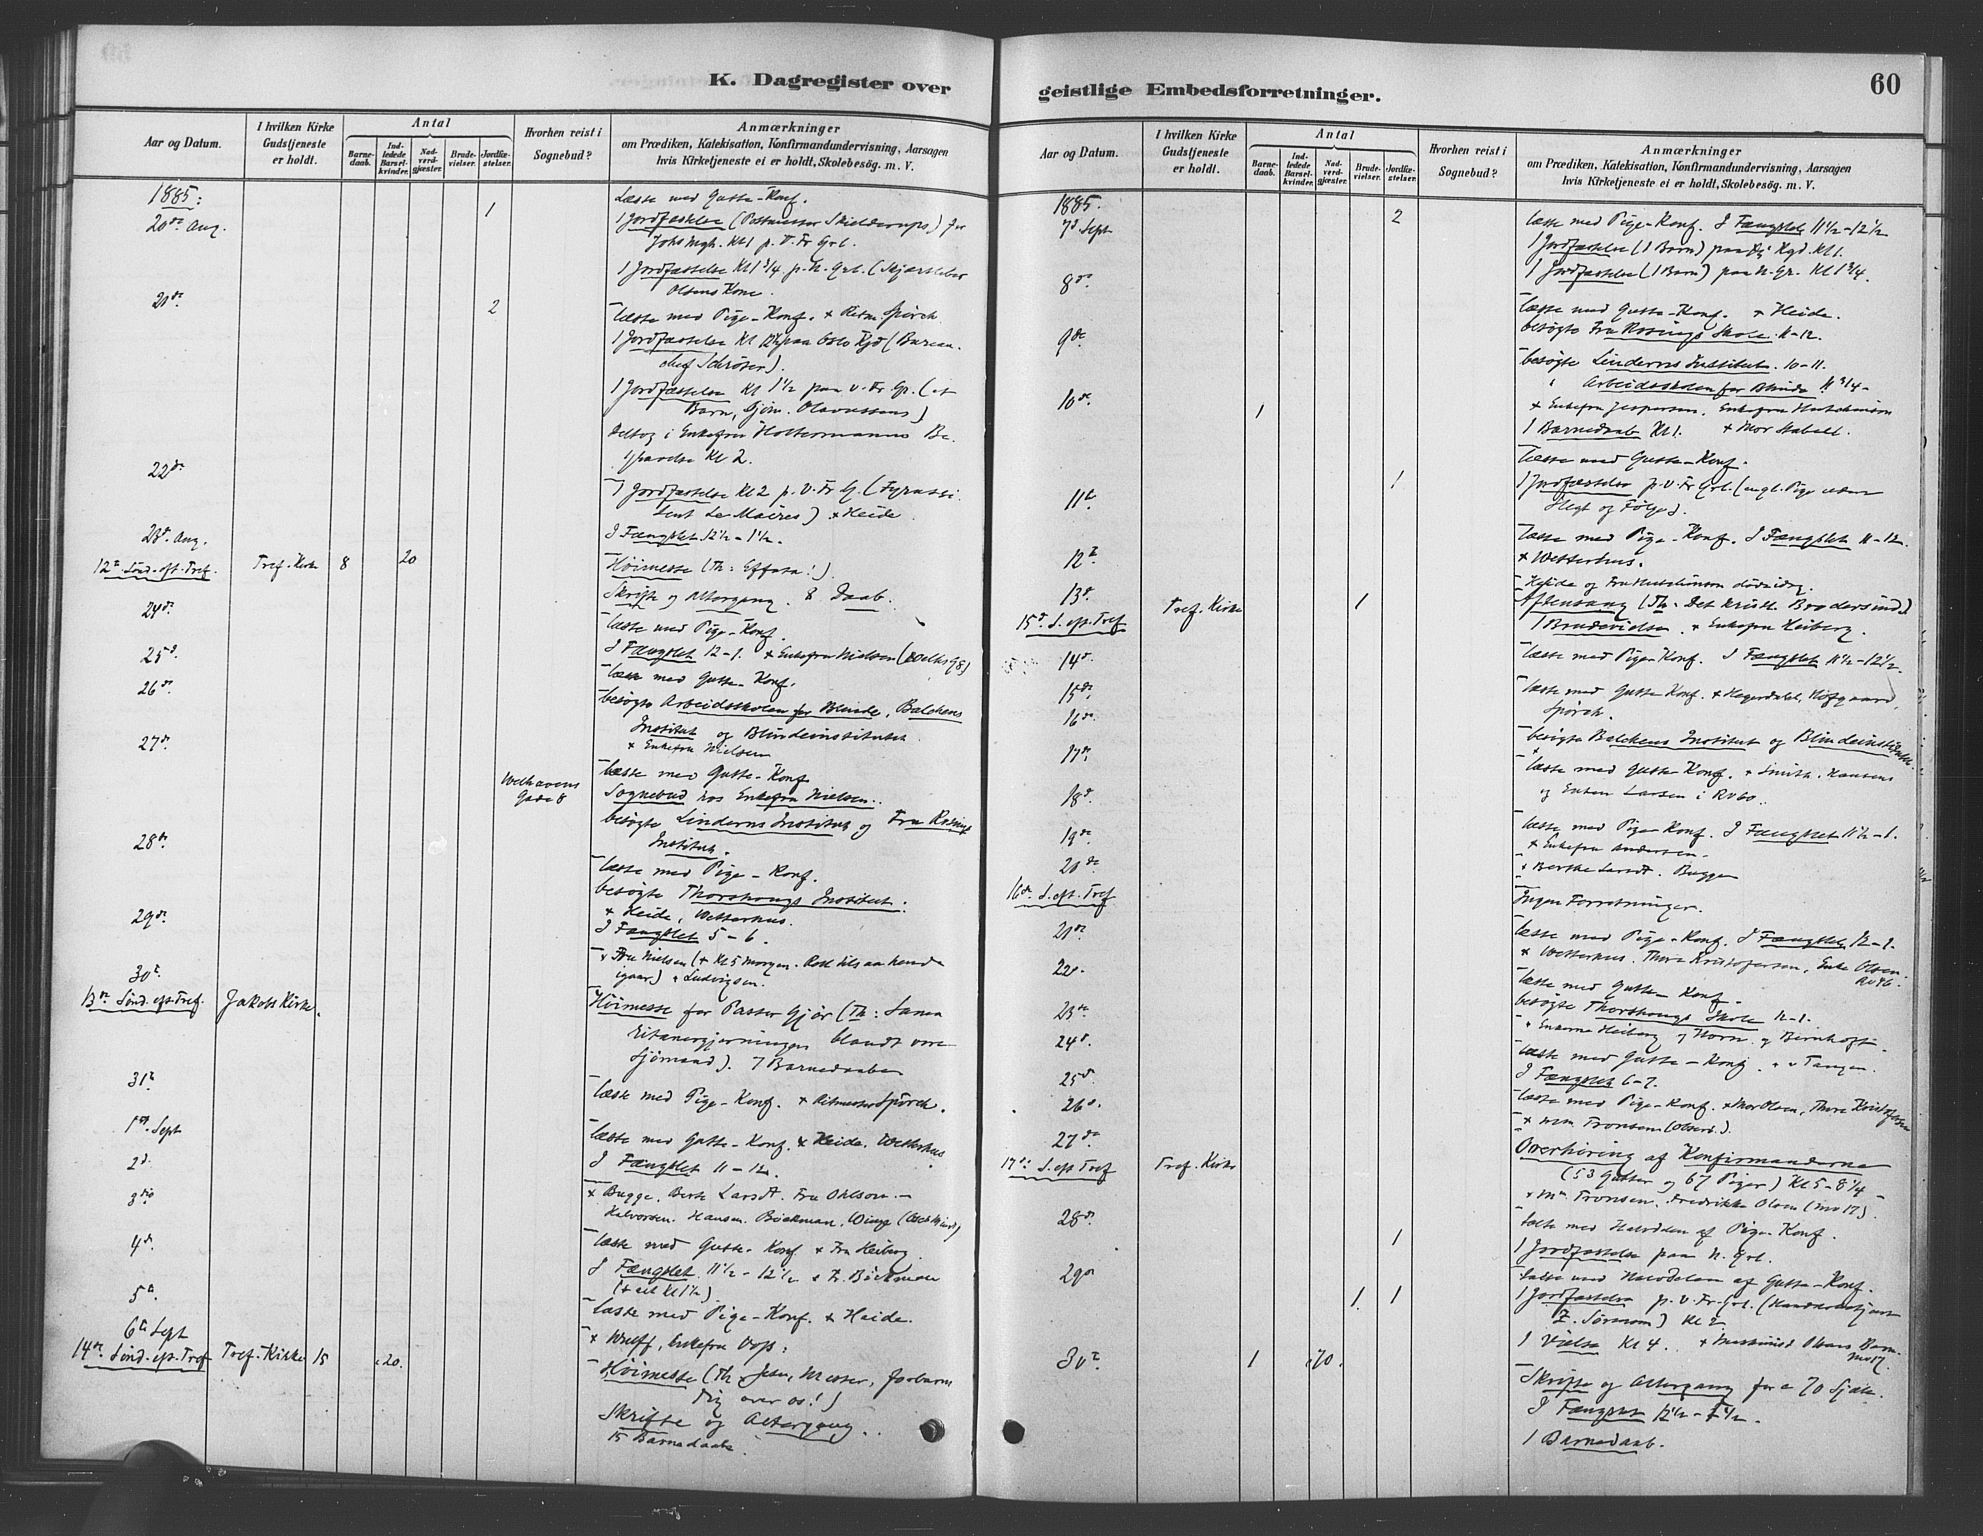 K. Dagregister over
Aar og Datum.
I hvilken Kirke Gudstjeneste er holdt.
Antal
Barnedaab.
Indledede Barselkvinder.
Nadverdgjæster.
Brudevielser.
Jordfæstelser.
Hvorhen reist i Sognebud?
Anmærkninger
om Prædiken, Katekisation, Konfirmandundervisning, Aarsagen
hvis Kirketjeneste ei er holdt, Skolebesøg. m. V.
1885:
20de Aug. 1 Læste med Gutte-Konf.
1 Jordfæstelse (Postmester Skielderups) for
Kl 1 p. V. Fr Grl.
1 Jordfæstelse Kl 1 3/4 p. N. Grl.
Olsens Kone.
21de 2 læste med Pige-Konf. + Ritm Spörck
1 Jordfæstelse Kl paa Oslo Kgd (Bureau-
chef Schröter).
1 Jordfæstelse Kl 1½ paa V. Fr Gr. (et
Barn, Olavussens)
Deltog i Enkefru Holtermanns Be-
Kl 2.
22de
1 Jordfæstelse Kl 2 p. V. Fr G.
+ Heide.
23de Aug. I Fængslet 12½-1½.
12te Sönd. eft. Tref. Tref. Kirke 8 20 Høimesse (Th: Effata!).
Skrifte og Altergang. 8 Daab.
24de læste med Pige-Konf.
I Fængslet 12-1. + Enkefru Nielsen
25de læste med Gutte-Konf.
26de besøgte Arbeidsskolen for Blinde, Balchens
Institut og Blindeinstitutet
+ Enkefru Nielsen
27de læste med Gutte-Konf
Welhavens Gade 8 Sognebud hos Enkefru Nielsen.
besøgte Linderns Institut og Fru Rosings
Institut.
28de læste med Pige-Konf.
besøgte Thorshaugs Institut.
+ Heide, Wetterhus.
29de I Fængslet 5-6.
+ Fru Nielsen (+ Kl 5 Morgen.
igaar) + Ludvigsen.
30te
13de Sönd. eft Tref. Jakobs Kirke. Høimesse for Pastor Gjör (Th: Sama-
ritanergjerningen blandt vore
Sjømænd). 7 Barnedaab
31te læste med Pige-Konf. + Ritmester Spörck.
1ste Sept læste med Gutte-Konf. + Heide. Wetterhus
2de I Fængslet 11-12.
3die + Bugge, Berte Larsdt. Fru Ohlson.
Halvorsen. Hansen. Böckman, Winge
4de læste med Gutte-Konf + Fru Heiberg.
I Fængslet 11½-12½ + Böckman
5te læste med Pige-Konf. + Heide.
6te Sept + Wulff, Enkefru Voss:
14de Sönd. eft. Tref Tref. Kirke 15 20. Høimesse (Th Jesu, Mester, forbarm
dig over os!)
Skrifte og Altergang.
15 Barnedaab.
geistlige Embedsforretninger.
60
Aar og Datum.
I hvilken Kirke Gudstjeneste er holdt.
Antal
Barnedaab.
Indledede Barselkvinder.
Nadverdgjæster.
Brudevielser.
Jordfæstelser.
Hvorhen reist i Sognebud?
Anmærkninger
om Prædiken, Katekisation, Konfirmandundervisning, Aarsagen
hvis Kirketjeneste ei er holdt, Skolebesøg. m. V.
1885.
7de Sept 2 læste med Pige-Konf. I Fængslet 11½-12½
1 Jordfæstelse (1 Barn) paa Kgd. Kl 1.
1 Jordfæstelse (1 Barn) paa N. Gr. Kl 1 3/4.
8de læste med Gutte-Konf. + Heide.
besøgte Fru Rosings Skole 11-12.
9de besøgte Linderns Institut. 10-11.
Arbeidsskolen for Blinde 11 3/4-
10de 1 + Enkefru Jespersen. Enkefru Hutchinson
1 Barnedaab Kl 1. + Mor Stabell.
læste med Gutte-Konf.
11te 1 1 Jordfæstelse p. V. Fr Grl. (engl. Pige uden
Slegt og Følge).
læste med Pige-Konf. I Fængslet 11-12.
12te + Wetterhus.
Heide og Fru Hutchinson døde idag.
13de Tref. Kirke 1 Aftensang (Th: Det kristl. Brodersind)
15de S. eft. Tref 1 Brudevielse. + Enkefru Heiberg.
14de læste med Pige-Konf. I Fængslet 11½-12½
15de læste med Gutte Konf. + Hagerdahl, Hofgaard,
Spörck.
16de besøgte Balchens Institut og Blindeinstitutet.
17de læste med Gutte Konf. + Smith. Hansens
og Enken Larsen i Rv 60.
18de læste med Pige Konf. I Fængslet 11½-1.
+ Enkefru Andersen.
19de + Berthe Larsdt. Bugge
20de
16de S. eft. Tref Ingen Forretninger.
21de læste med Pige-Konf. I Fængslet 12-1.
+ Wetterhus. Thora Kristofersen, Enke Olsen.
Rv 46.
22de læste med Gutte-Konf.
besøgte Thorshaugs Skole 12-1.
23de + Enkerne Heiberg og Horn. og Bernhoft.
24de læste med Gutte-Konf. + Tangen
I Fængslet 6-7.
25de læste med Pige-Konf. + Mor Olsen, Thora Kristofersen
26de + Tronsen
27de
17de S. eft Tref Tref. Kirke Overhøring af Konfirmanderne
(53 Gutter og 67 Piger) Kl 5-8¼
+ Tronsen. Fredrikke Olsen
28de læste med Halvdelen af Pige-Konf.
1 1 Jordfæstelse paa N. Grl.
29de læste med Halvdelen af Gutte-Konf.
1 1 1 Jordfæstelse p. V. Fr. Grl.
Sörensen) Kl 2
1 Vielse Kl 4. + Olsens Barn.
30te 1 70. Skrifte og Altergang for c 70 Sjæle.
I Fængslet
1 Barnedaab.